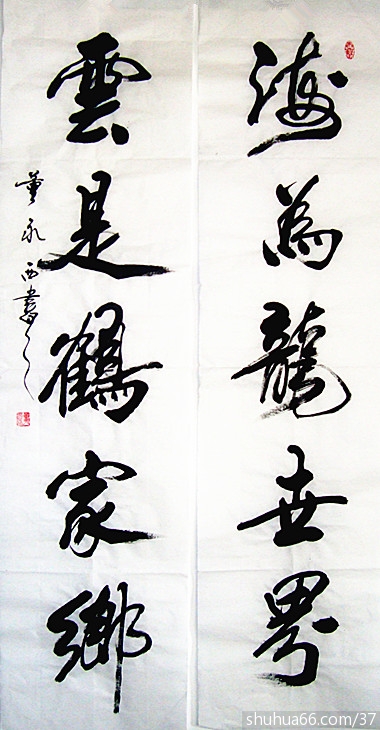 海為龍世界
雲是鶴家鄉
董永西書
shuhua66.com/37